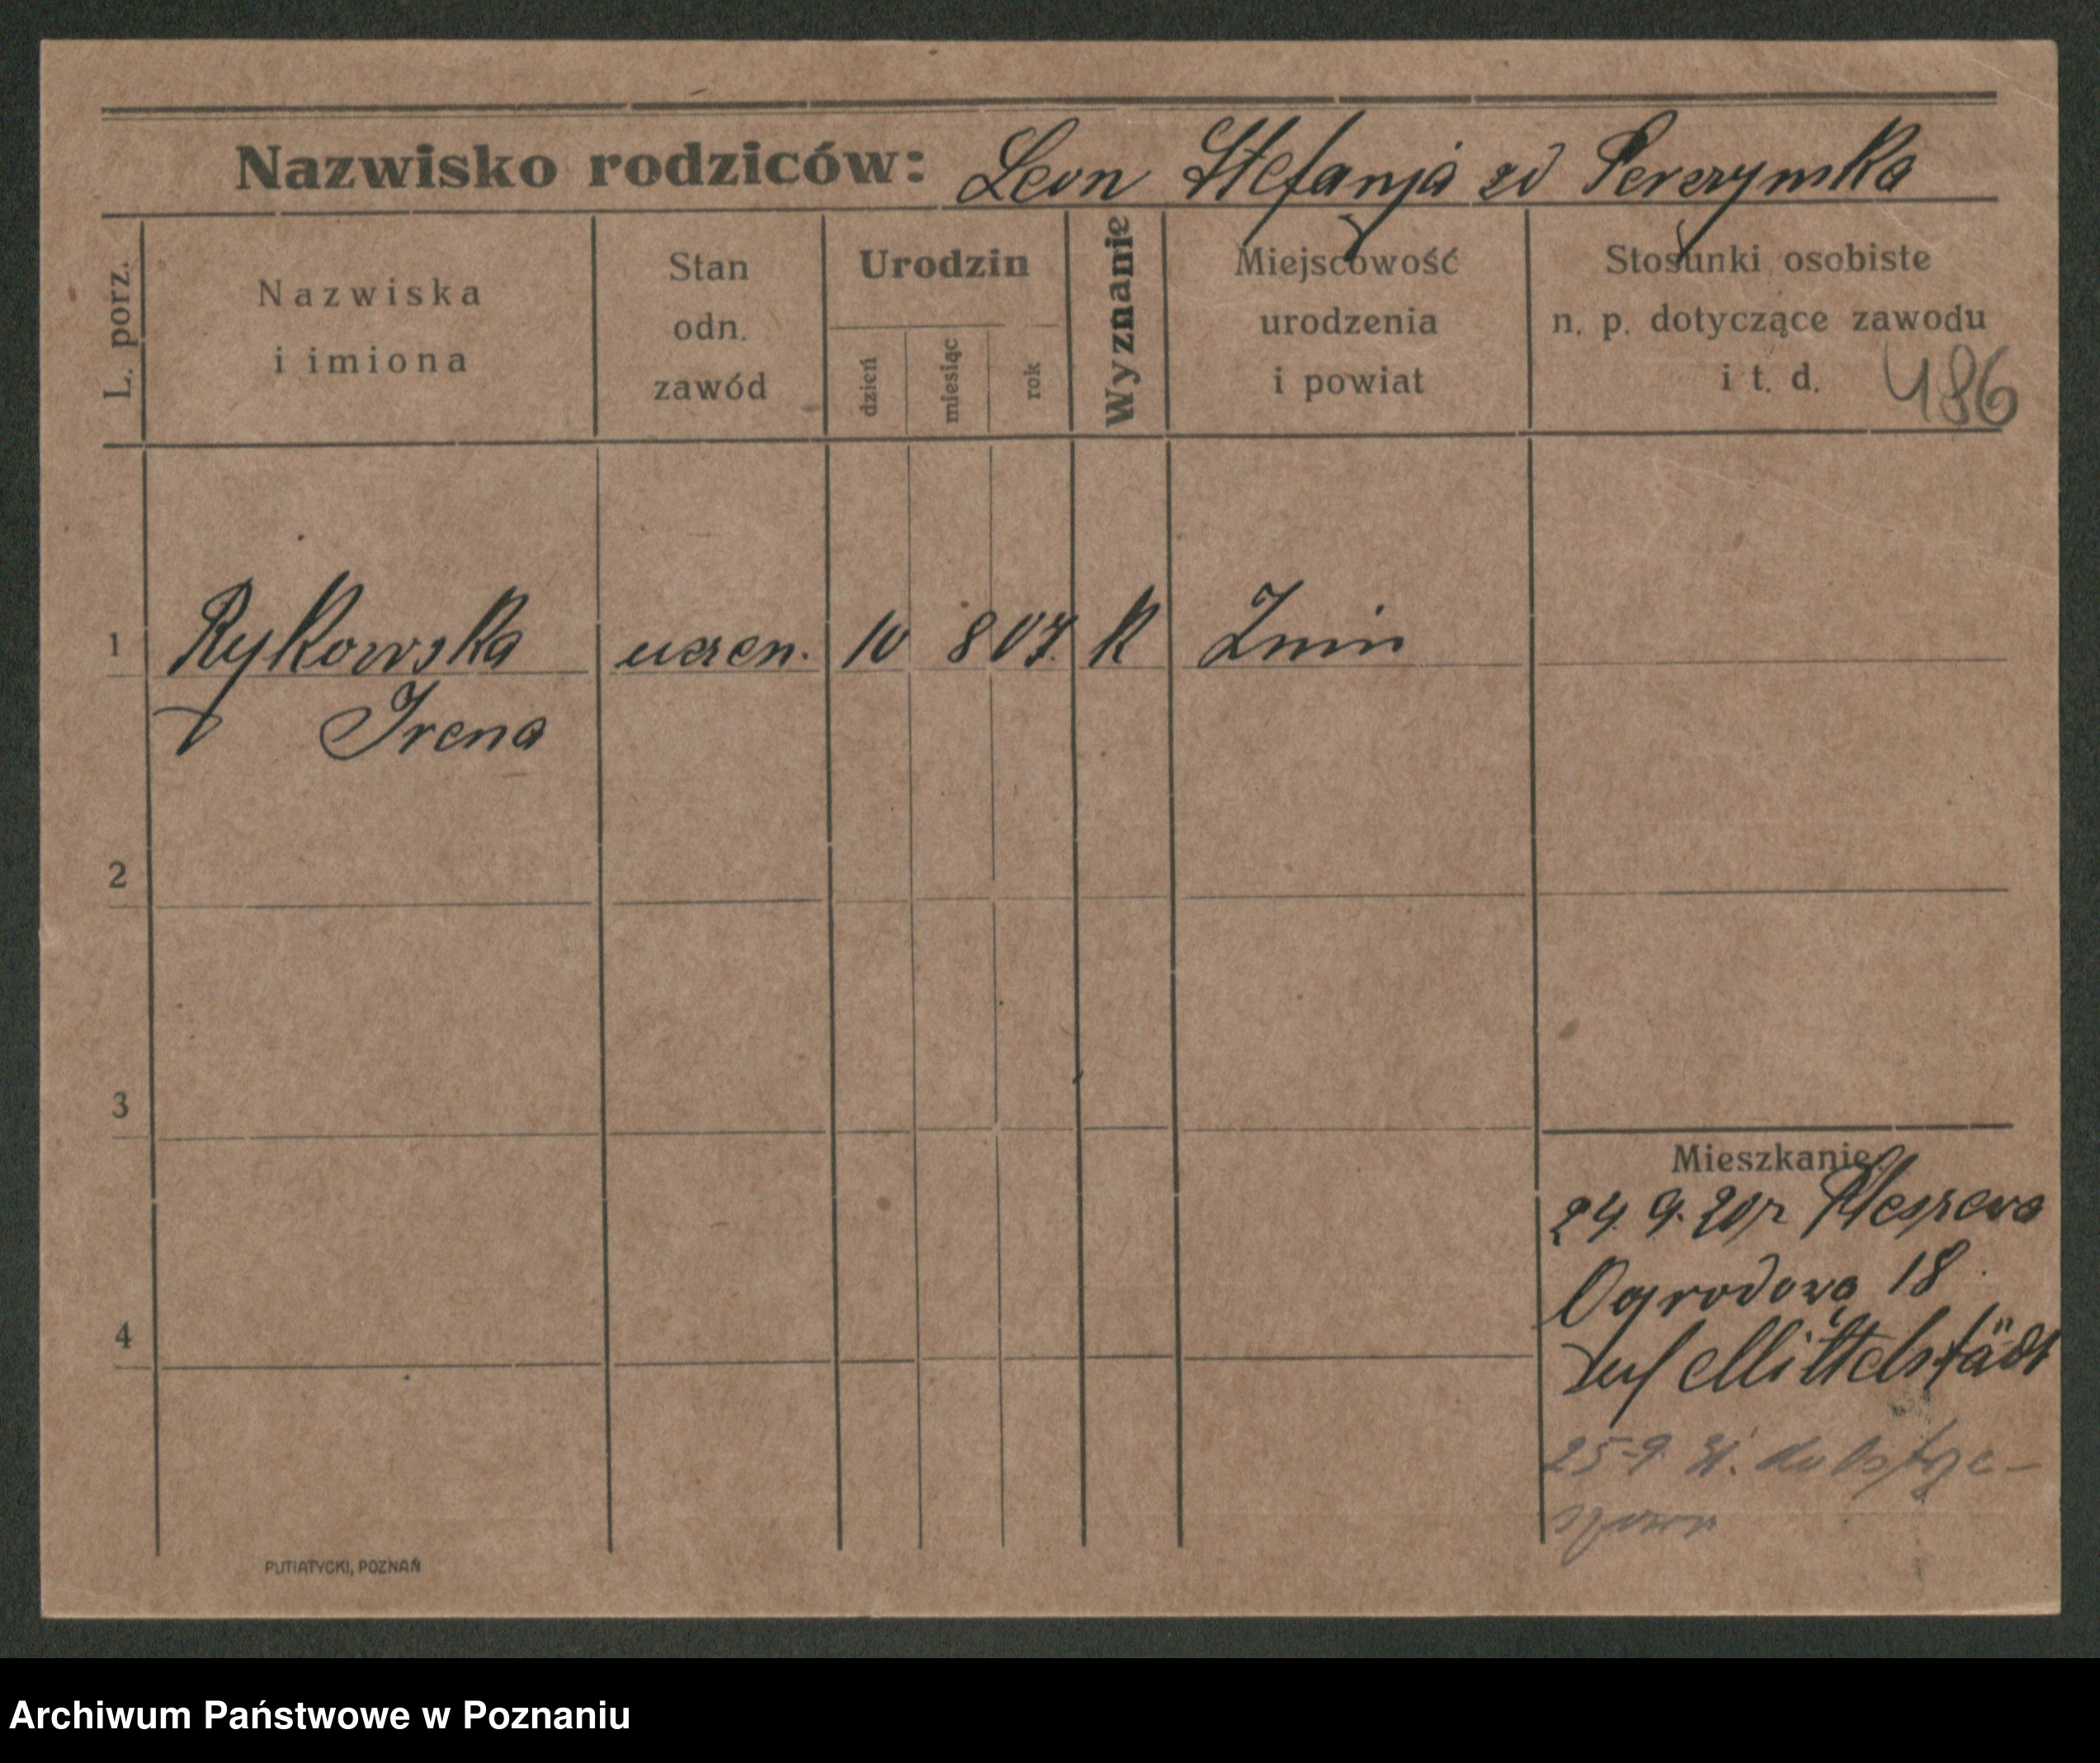 Nazwisko rodziców: Leon Stefanja zd Perczynska
L. porz.
Nazwiska
i imiona
Stan
odn.
zawód
Urodzin
dzień
miesiąc
rok
Wyznanie
Miejscowość
urodzenia
i powiat
Stosunki osobiste
n. p. dotyczące zawodu
i t. d.
486
1 Rykowska uczen. 10 8 07. K Znin
Irena
2
3
4
Mieszkanie
24. 9. 20 r Pleszewa
Ogrodowa 18
Mittelstädt
25-9. 21. do Ostrze-
szowa
PUTIATYCKI, POZNAŃ
Archiwum Państwowe w Poznaniu